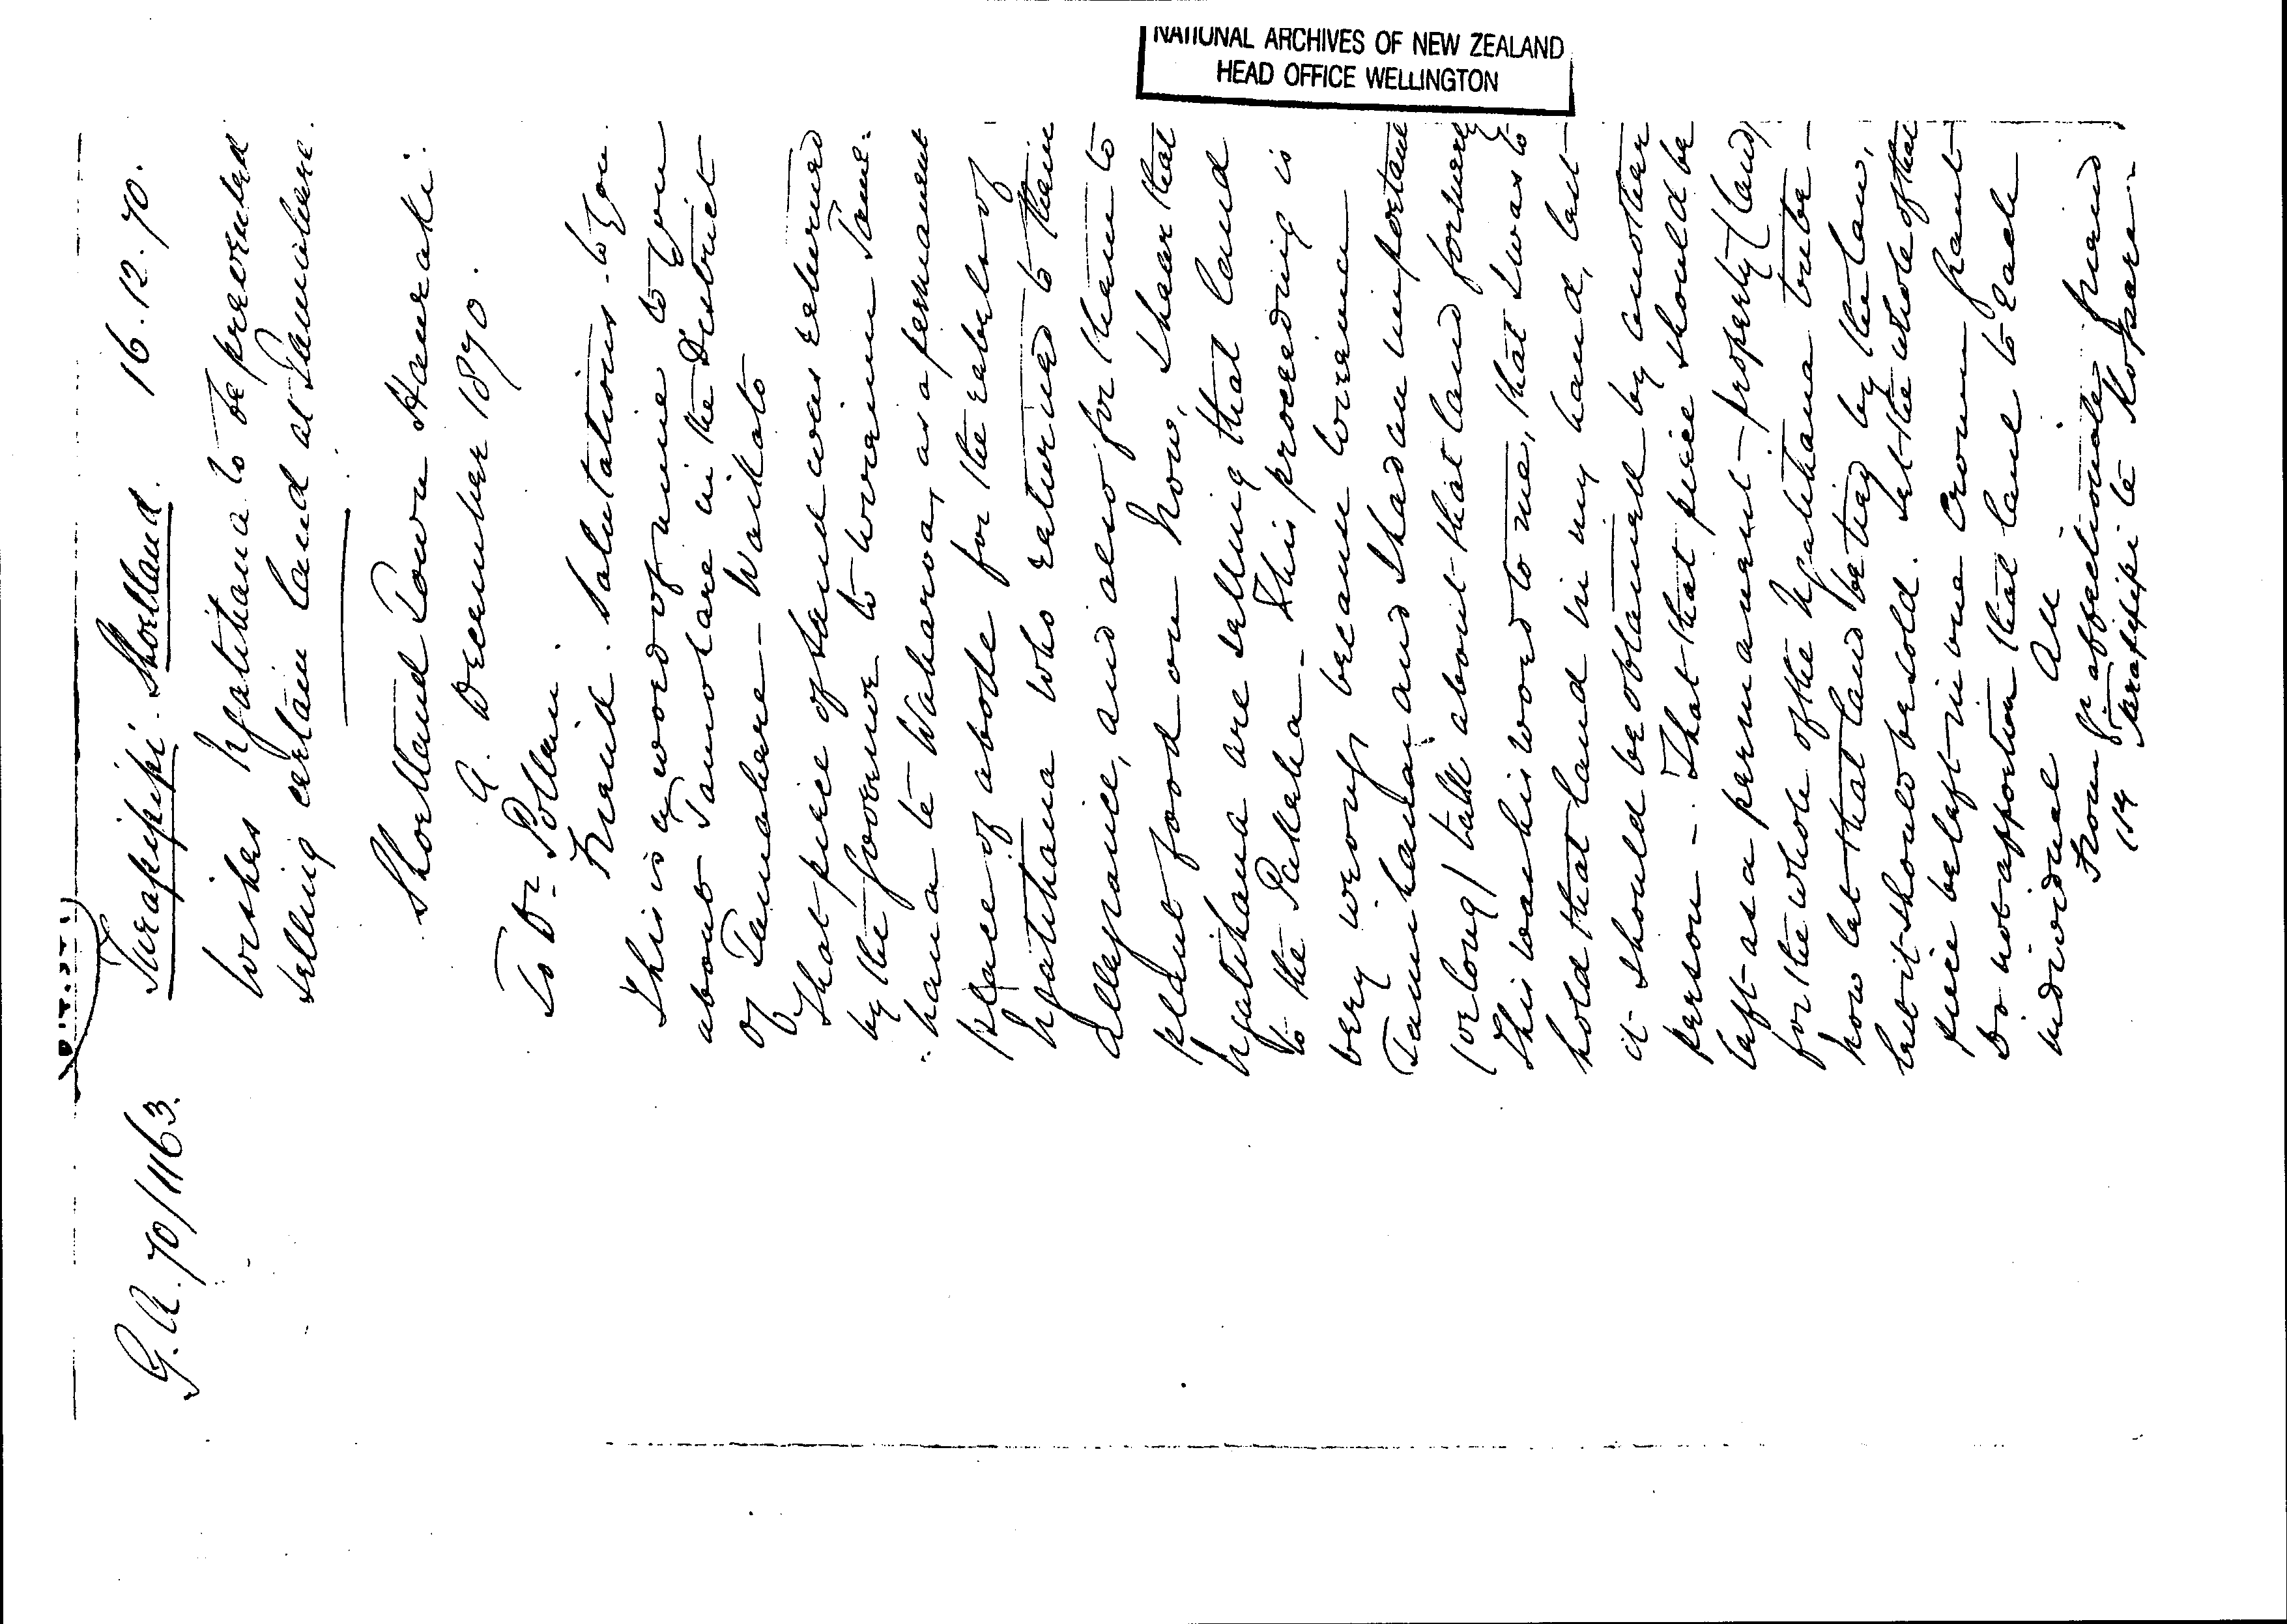 NATIONAL ARCHIVES OF NEW ZEALAND
HEAD OFFICE WELLINGTON
G.A. 70/1163.
Tarapipipi. Shortland. 16.12.70.
Wishes Ngatihaua to be prevented
selling certain land at Tamahere.
Shortland Town Hauraki.
9. December 1870.
To Dr. Pollen.
Friend. Salutations to you.
This is a word of mine to you
about Tamotare in the District
of Tamahere - Waikato
That piece of land was returned
by the Governor to Wiremu Tame-
-hana te Waharoa, as a permanent
place of abode for the rebels of
Ngatihaua who returned to their
allegiance, and also for them to
plant food on. Now, I hear that
Ngatihaua are selling that land
to the Pakeha - This proceeding is
very wrong because Wiremu
Tamihana and I had an important
(or long) talk about that land formerly
This was his word to me, that I was to
hold that land in my hand, lest
it should be obtained by another
person - That that piece should be
left as a permanent property (land)
for the whole of the Ngatihaua tribe -
now let that land be tied by the law,
lest it should be sold. Let the whole of that
piece be left in one Crown Grant
Do not apportion that land to each
individual All
From yr affectionate friend
(s) Tarapipipi te Kopara -